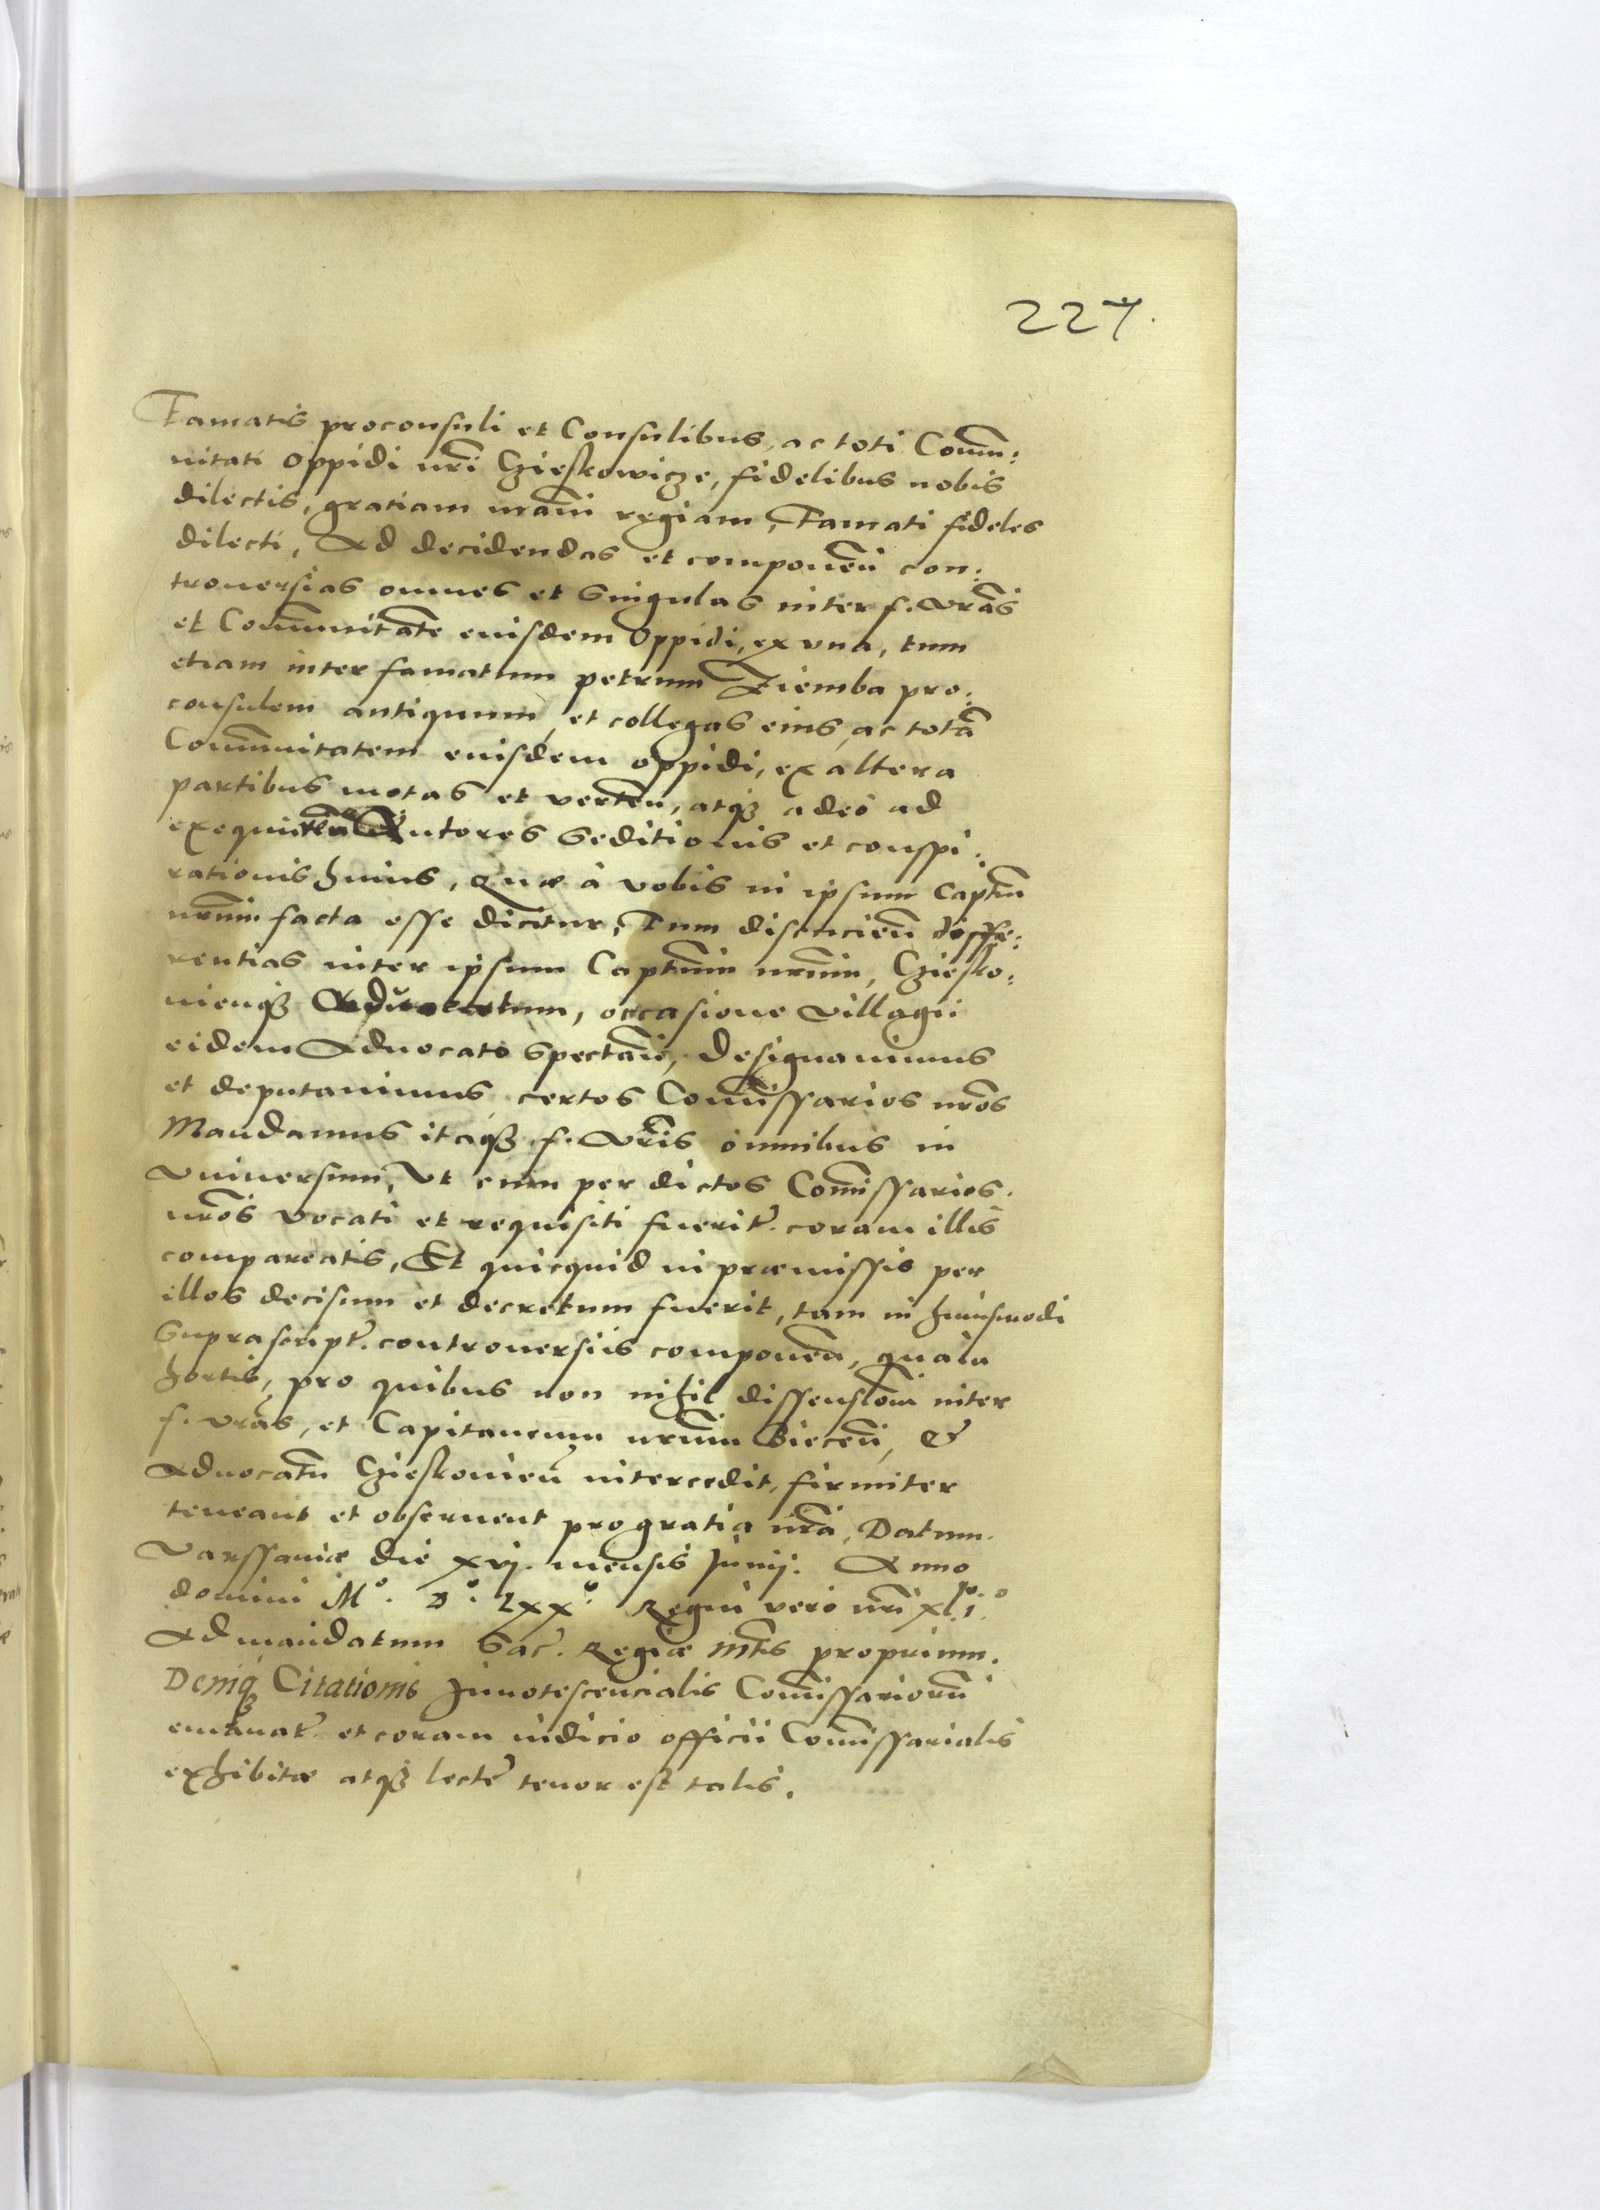 227.
Famatis proconsuli et Consulibus, ac toti Comm̃:
nitati oppidi nr̃i Czieskowicze, fidelibus nobis
dilectis, gratiam nr̃am regiam, Famati fideles
dilecti, Ad decidendas et componeñ con:
trouersias omnes et singulas inter f. vr̃as
et Com̃unitatẽ eiusdem oppidi, ex una, tum
etiam inter famatum petrum Ziemba pro:
consulem antiquum, et collegas eius, ac totã
Com̃unitatem eiusdem oppidi, ex altera
partibus motas et verteñ, atq₃ adeo ad
Autores seditionis et conspi:
rationis huius, quæ à vobis in ipsum Captñu
nr̃um facta esse dicitur, Tum discucieñ diffe:
rentias inter ipsum Captñum nr̃um, Cziesko:
uienq₃ Aduocatum, occasione villagii
eidem Aduocato spectañ, designauimus
et deputauimus certos Com̃issarios nr̃os
Mandamus itaq₃ f. vr̃is omnibus in
vniuersum, Vt cum per dictos Com̃issarios.
nr̃os vocati et requisiti fuerit̃. coram illis
compareatis, Et quicquid in præmissis per
illos decisum et decretum fuerit, tam in huiusmodi
suprascript̃. controuersiis componeñ, qua in
hortis, pro quibus non nihil dissensioñ inter
f. vr̃as, et Capitaneum nr̃um Bieceñ, &
Aduocatũ Czieskouieñ intercedit, firmiter
teneant et obseruent pro gratia nr̃a, Datum.
Varssauiæ die xvj. mensis Junij. Anno
domini M°. D°. Lxx°. Regni vero nr̃i xl.i.°
Ad mandatum Sac̃. Regiæ Mt̃is proprium.
Deniq₃ Citationis Innotescencialis Com̃issariorũ
emanat̃. et coram iudicio officii Com̃issarialis
exhibitæ atq₃ lectæ tenor est talis.